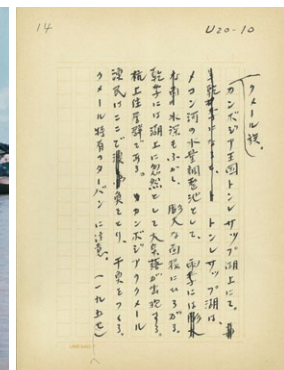 14
U20-10
(クメール族。
カンボジア王国トンレサップ湖上にて。
トンレサップ湖は、
メカン河の水量調整池として、雨季には
な雨水沢もふかく、厖大な面積にひろがる。
乾季には湖上に忽然として大集落が出現する。
杭上住居群である。カンボジアクメール
漁民はここで漁魚をとり、干魚をつくる。
クメール特有のターバンに注意。(一九五七)